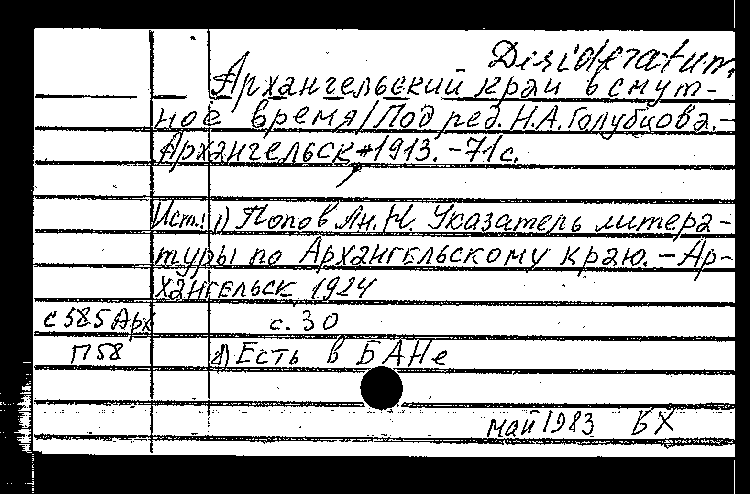 Desideratum
Архангельский край в смут-
ное время/Под ред. Н.А.Голубцова.-
Архангельск, 1913. - 71 с.
Ист.: 1) Попов Ан. Н. Указатель литера-
туры по Архангельскому краю. - Ар-
хангельск, 1924
с 585 Арх с. 30
П 58 2) Есть в БАНе
май 1983 БХ